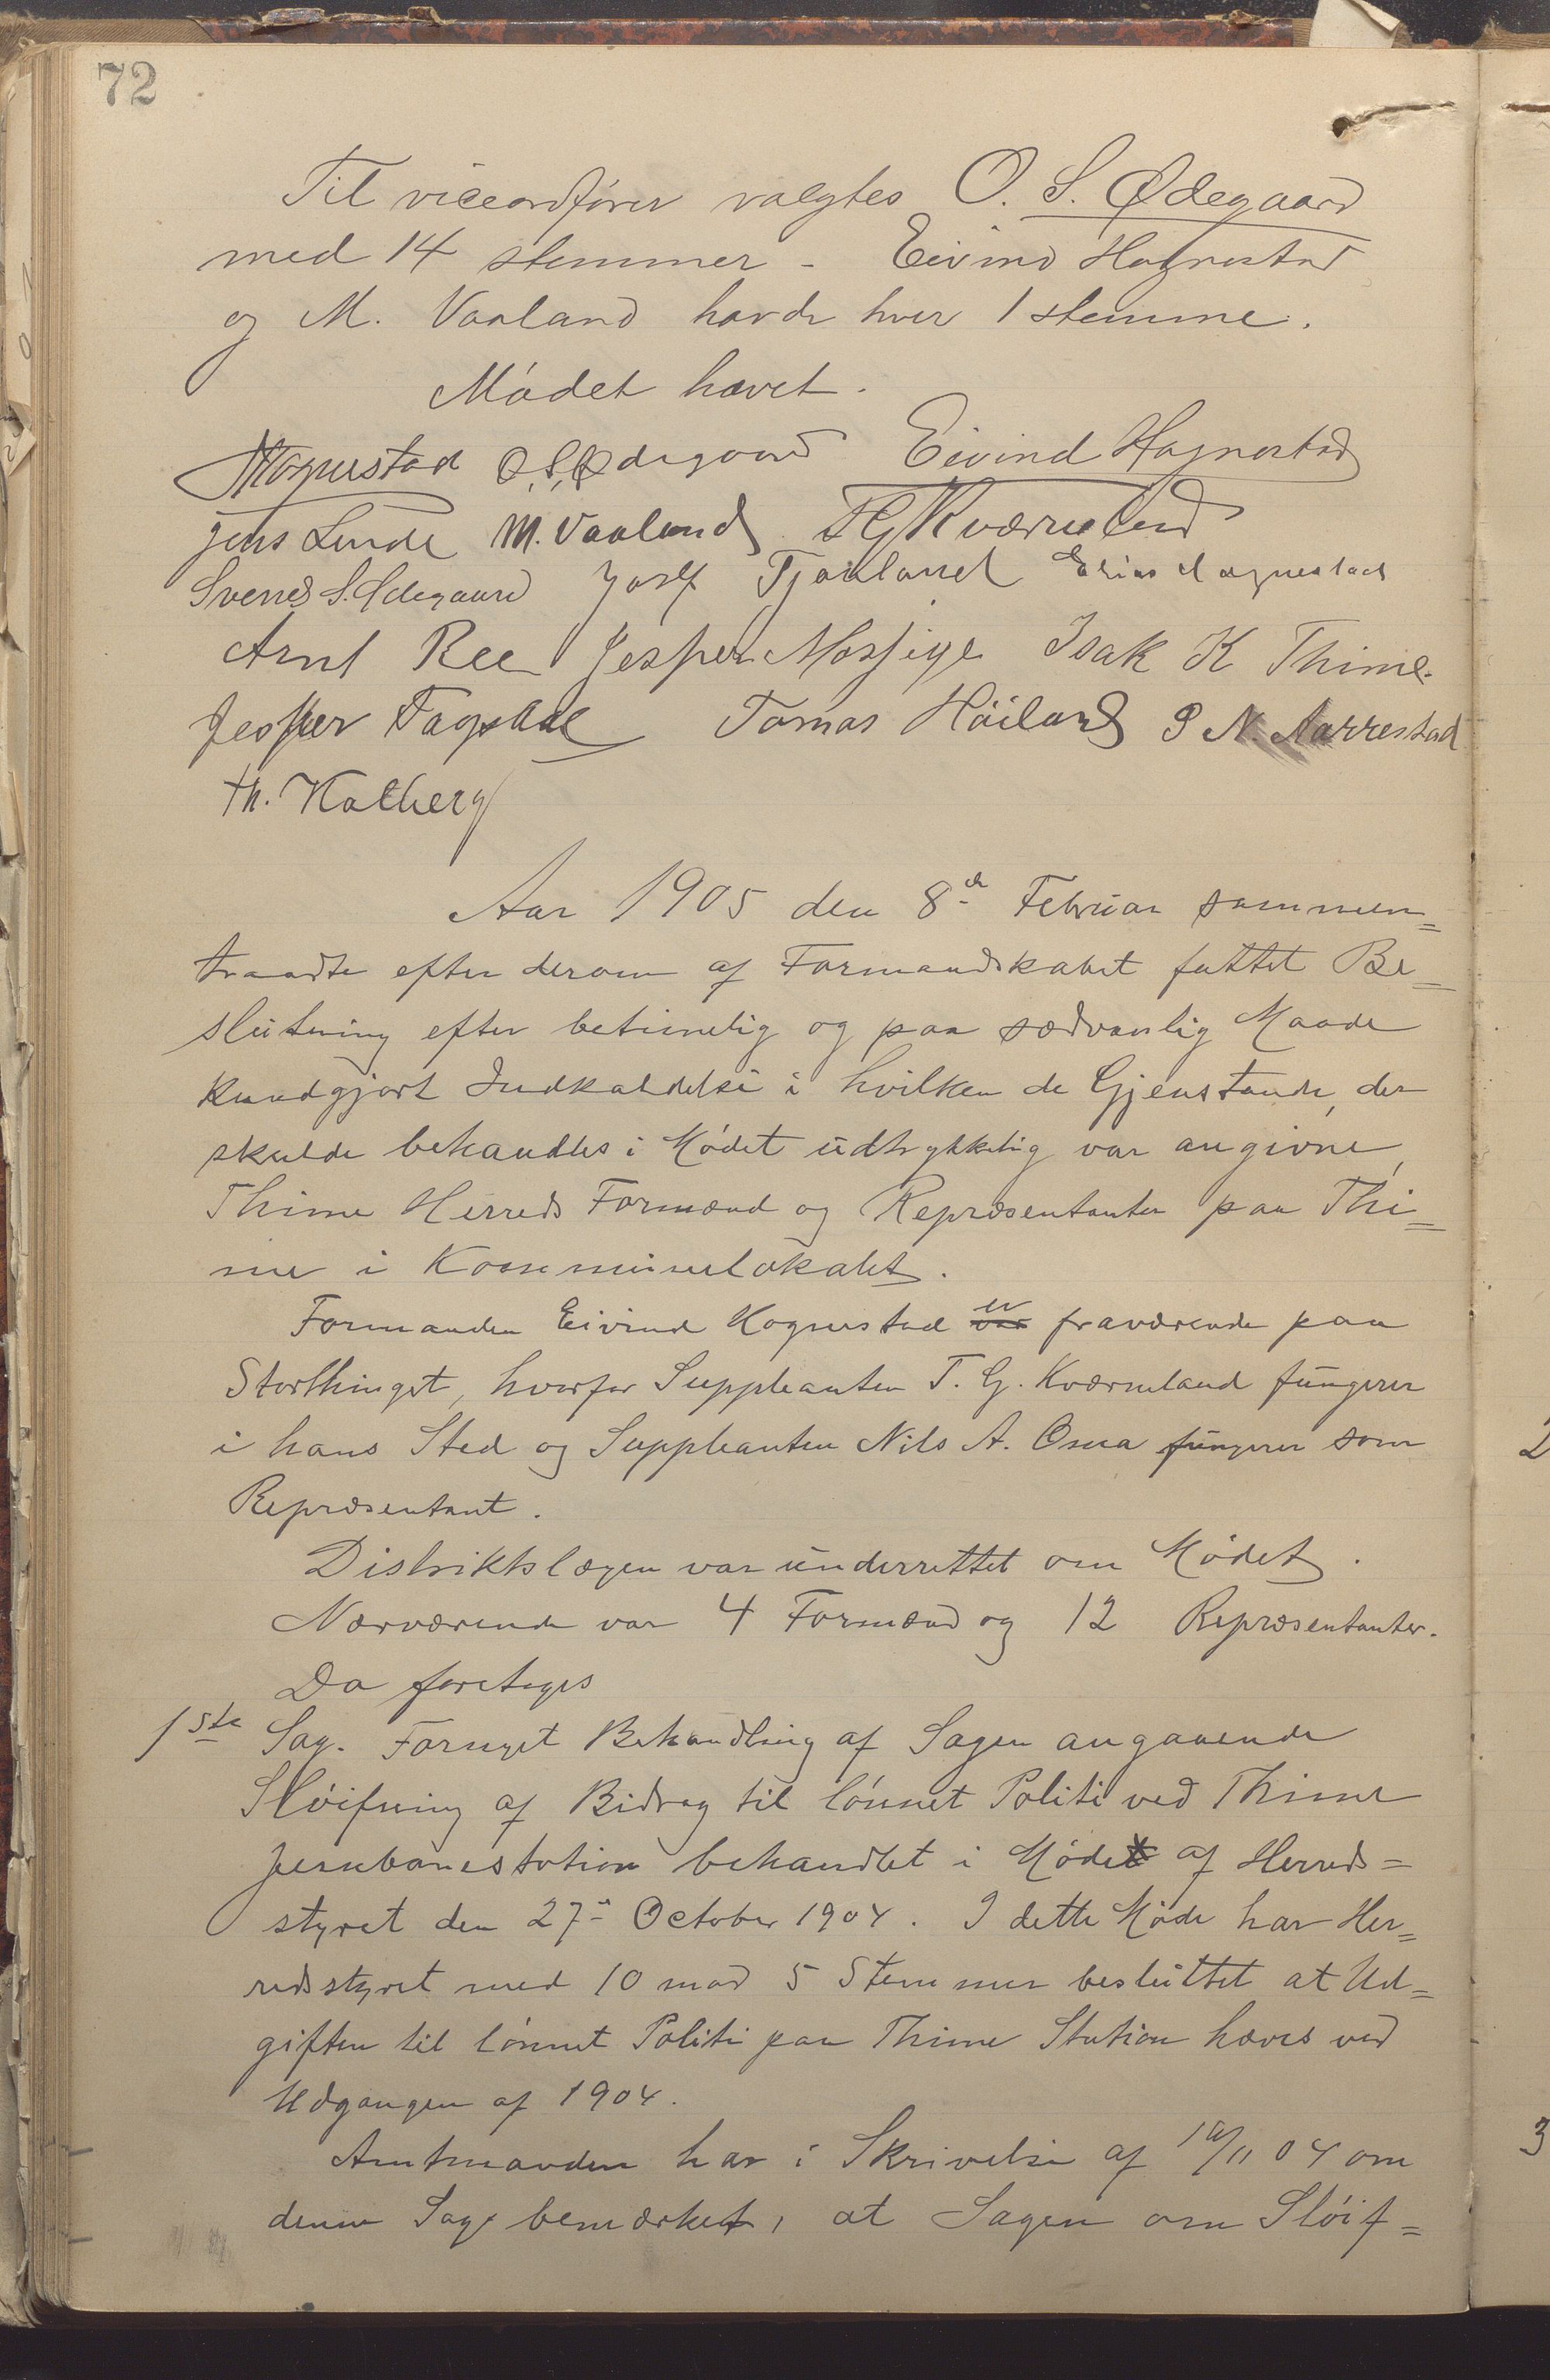 72
Til viceordfører valgtes O. S. Ødegaard
med 14 stemmer - Eivind Hognestad
og M. Vaaland havde hver 1 stemme.
Mødet hævet.
Hognestad O. S. Ødegaard Eivind Hognestad
Jens Lende M. Vaaland T G Kværneland
Svend S. Ødegaard Josef Tjaaland Elias Hognestad
Arnt Ree Jesper Mossige Isak K Thime.
Jesper Fagstad Tomas Høiland P N. Aarrestad
Th. Kalberg
Aar 1905 den 8de Februar sammen=
traadte efter derom af Formandskabet fattet Be=
slutning efter betimelig og paa sædvanlig Maade
kundgjort Indkaldelse i hvilken de Gjenstande, der
skulde behandles i Mødet udtrykkelig var angivne,
Thime Herreds Formænd og Repræsentanter paa Thi=
me i Kommunelokalet.
Formanden Eivind Hognestad var er fraværende paa
Storthinget, hvorfor Suppleanten T. G. Kværneland fungerer
i hans Sted og Suppleanten Nils A. Onea fungerer som
Repræsentant.
Distriktslægen var underrettet om Mødet.
Nærværende var 4 Formænd og 12 Repræsentanter.
Da foretoges
1ste Sag. Fornyet Behandling af Sagen angaaende
Sløifning af Bidrag til lønnet Politi ved Thime
Jernbanestation behandlet i Møde af Herreds=
styret den 27de October 1904. I dette Møde har Her=
redsstyret med 10 mod 5 Stemmer besluttet at Ud=
giften til lønnet Politi paa Thime Station hæves ved
Udgangen af 1904.
Amtmanden har i Skrivelse af /11 04 om
denne Sag bemærket, at Sagen om Sløif=
2
3